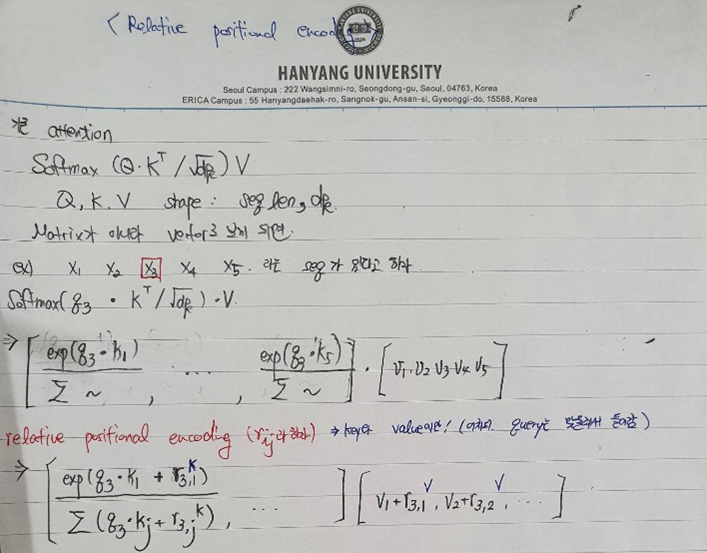 < Relative positional encoding >
HANYANG UNIVERSITY
Seoul Campus : 222 Wangsimni-ro, Seongdong-gu, Seoul, 04763, Korea
ERICA Campus : 55 Hanyangdaehak-ro, Sangnok-gu, Ansan-si, Gyeonggi-do, 15588, Korea
attention
Softmax (Q·K^T / √dk) V
Q, K, V shape : seq len, dk
Matrix가 아니라 vector로 보게 되면.
ex) X1 X2 X3 X4 X5. 라는 seq가 있다고 하자
Softmax(q3 · K^T / √dk) · V.
⇒ [ exp(q3·k1) / Σ ~ , ... , exp(q3·k5) / Σ ~ ] · [ V1 · V2 V3 V4 V5 ]
relative positional encoding (rij라 하자) → key와 value에만! (어차피 query는 맞물려서 들어감)
⇒ [ exp(q3·k1 + r3,1^K) / Σ (q3·kj + r3,j^K) , ... ] [ V1+r3,1^V , V2+r3,2^V , ... ]